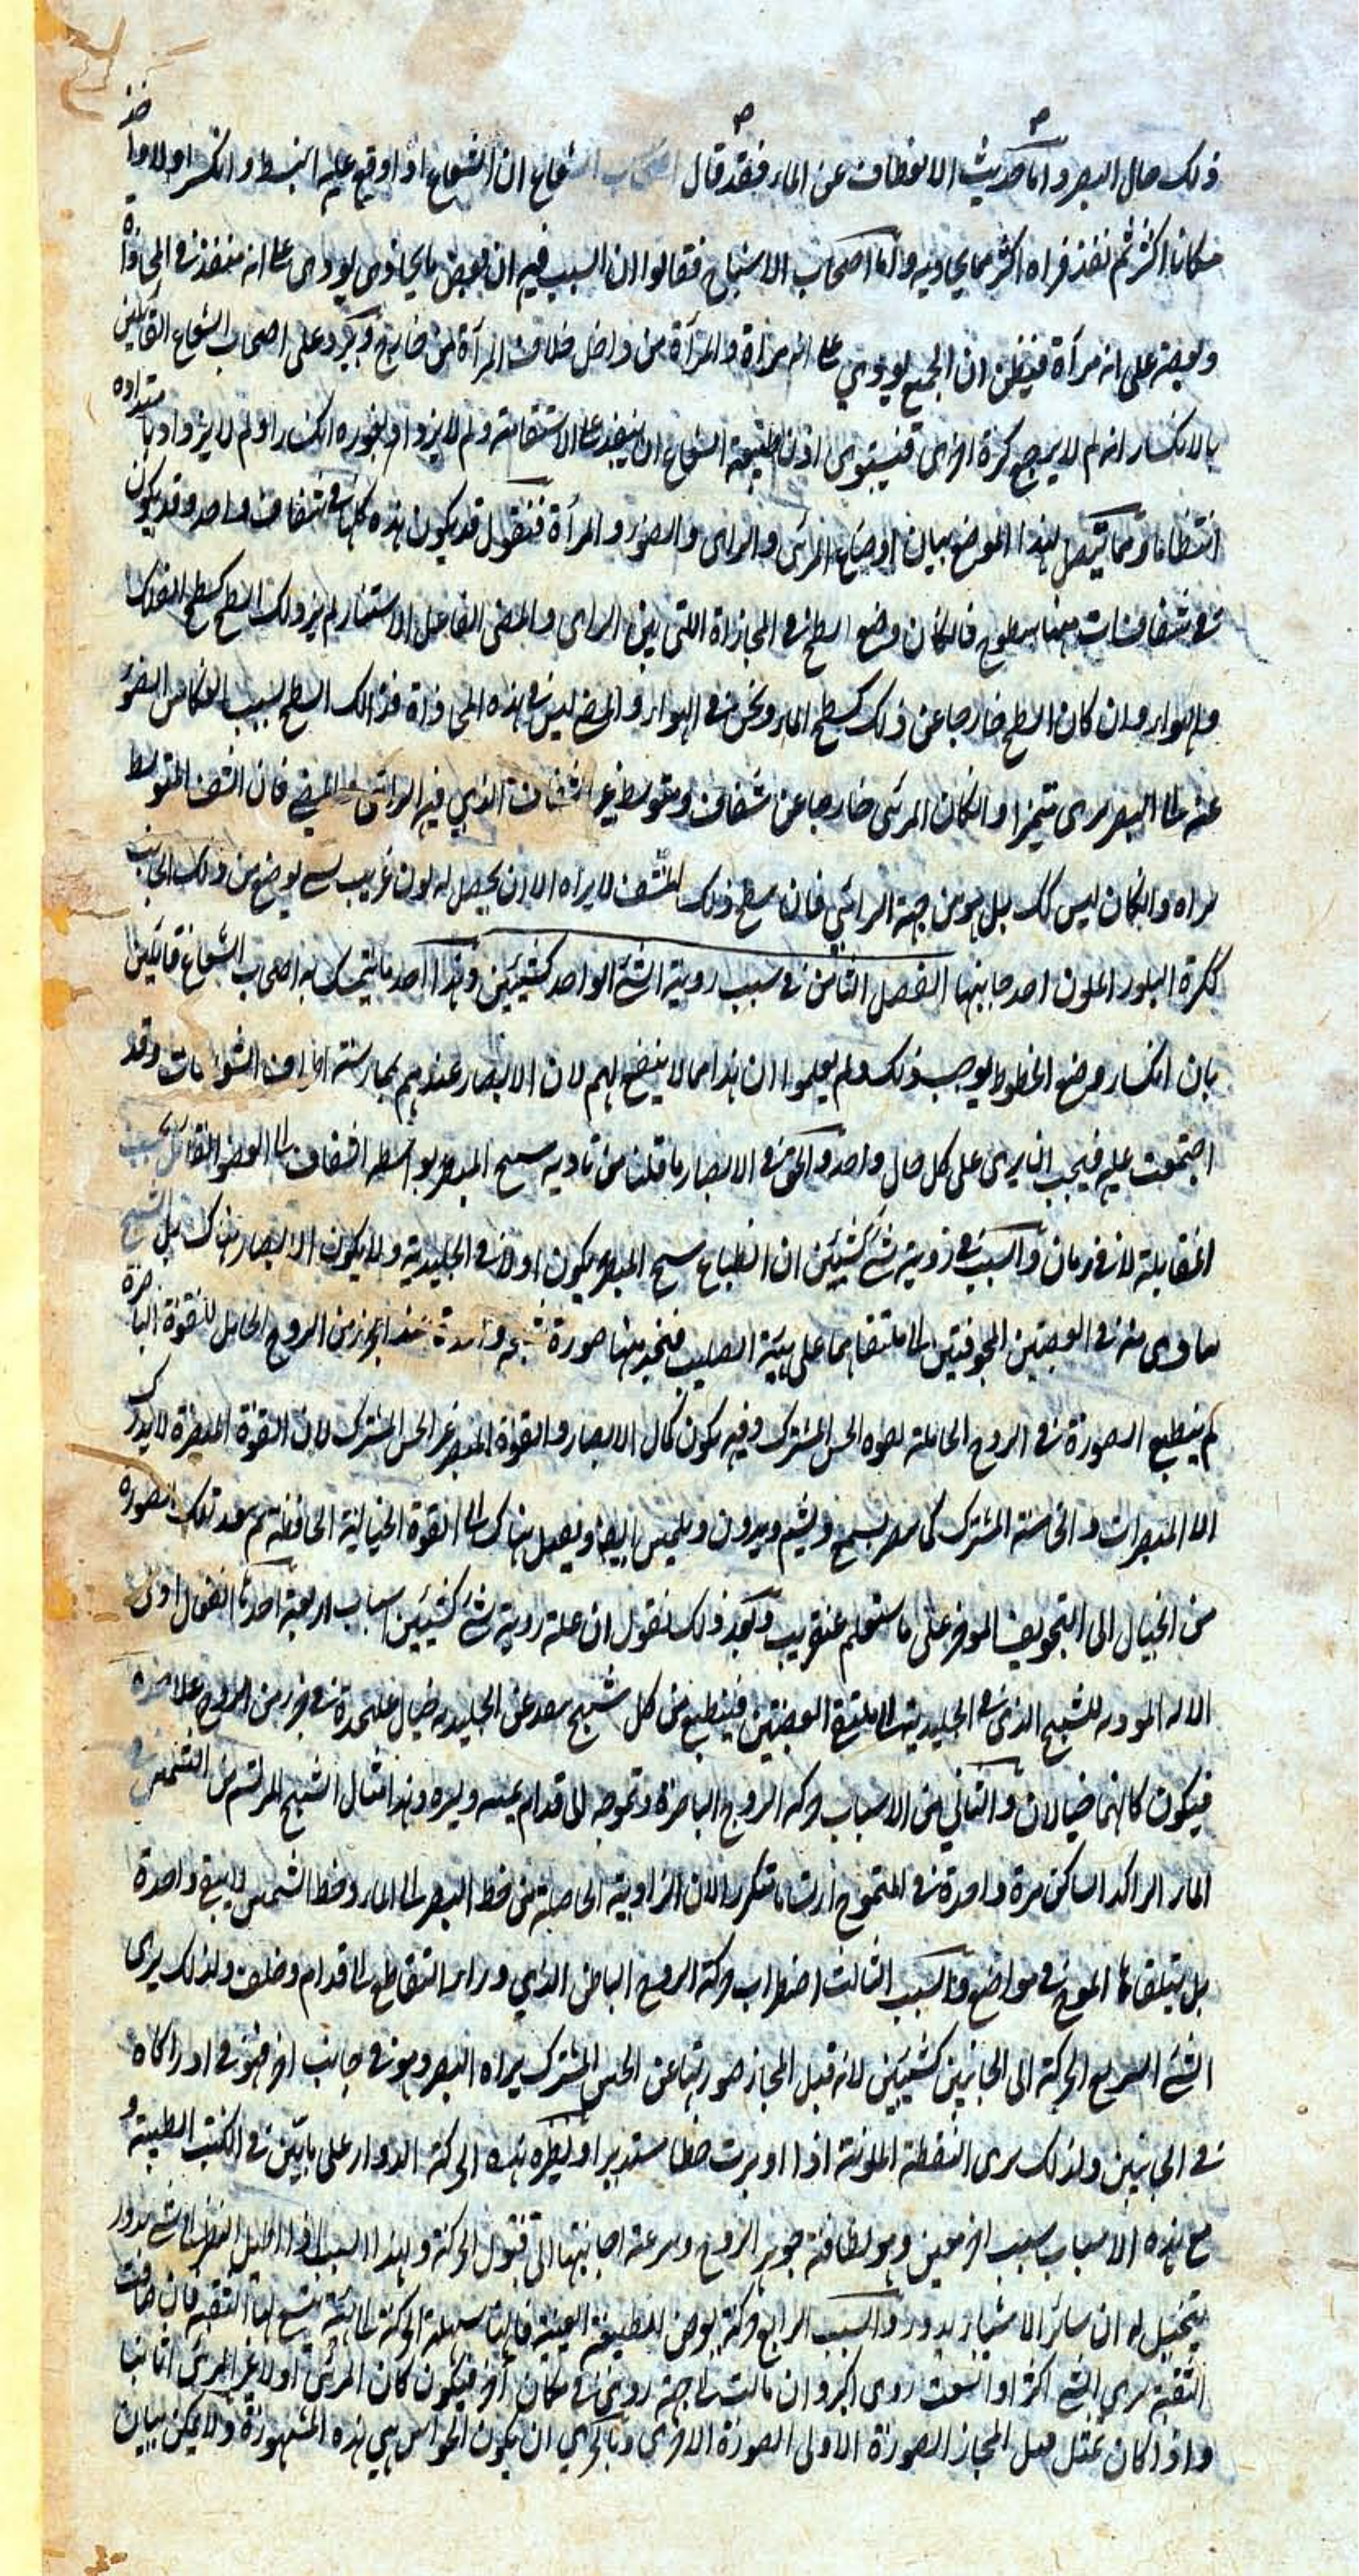 ذلك حال البصر واما حديث الانعطاف عن الماء فقد قال اصحاب الشعاع ان الشعاع اذا وقع عليه انبسط وانكسر اولا واخذ
مكانا اكثر ثم نفذ فراه اكثر مما يحاذيه واما اصحاب الاشباح فقالوا ان السبب فيه ان بعض ما يحاذى يودى على انه منفذ فى المحاذاة
وبعضه على انه مرآة فيظن ان الجميع يودي على انه مرآة والمرآة من داخل خلاف المرآة من خارج ويرد على اصحاب الشعاع القائلين
بالانكسار انه لم لا يرجع كرة اخرى فيستوى اذ طبيعة الشعاع ان ينفذ على الاستقامة ولم لا يزداد بغوره انكسارا ولم لا يزداد بامتداده
انتظاما ومما يتصل بهذا الموضع بيان اوضاع المرئى والرائى والضوء والمرآة فنقول قد يكون هذه كلها فى شفاف واحد وقد يكون
فى شفافات بينها سطوح فان كان وضع السطح فى المحاذاة التى بين الرائى والمضى الفاعل للاستنار لم ير ذلك السطح كسطح الفلك
والهواء وان كان السطح خارجا عن ذلك كسطح الماء ونحن فى الهواء والمضى ليس فى هذه المحاذاة فذالك السطح بسبب انعكاس الضوء
عنه الى البصر يرى متميزا وان كان المرئى خارجا عن شفاف ومتوسط غير الشفاف الذي فيه الرائى فان الشف المتوسط
يراه وان كان ليس كك بل هو من جهة الرائي فان سطح ذلك المشف لا يراه الا ان يحصل له لون غريب يوضع من ذلك الجانب
ككرة البلور الملون احد جانبيها الفصل الثامن فى سبب روية الشئ الواحد كشيئين وهذا احد ما يتمسك به اصحاب الشعاع قائلين
بان انكسار وضع الخطوط يوجب ذلك ولم يعلموا ان هذا مما لا ينفع لهم لان الابصار عندهم بمماسة اطراف الشعاعات وقد
اجتمعت عليه فيجب ان يرى على كل حال واحدا والحق فى الابصار ما قلنا من تادية شبح المبصر بواسطة الشفاف الى العضو القابل بحسب
المقابلة لا فى زمان والسبب فى روية شئ كشيئين ان انطباع شبح المبصر يكون اولا فى الجليدية ولا يكون الابصار هناك بل الشبح
يتادى منه فى العصبتين المجوفتين الى ملتقاهما على هيئة الصليب فيتحد منهما صورة شبحية واحدة عند الجزء من الروح الحامل للقوة الباصرة
ثم ينطبع الصورة فى الروح الحاملة لقوة الحس المشترك وفيه يكون كمال الابصار والقوة المبصرة غير الحس المشترك لان القوة المبصرة لا يدرك
الا المبصرات والحاسة المشترك كما يبصر يسمع ويشم ويذوق ويلمس ايضا ويصل هناك الى القوة الخيالية الحافظة ثم ينفذ تلك الصورة
من الخيال الى التجويف الموخر على ما ستعلم عنقريب وبعد ذلك نقول ان علة روية شئ كشيئين اسباب اربعة احدها انفتال
الالة المودية للشبح الذى فى الجليدية الى ملتقى العصبتين فينطبع من كل شبح ينفذ عن الجليدية خيال عليحدة فى جزء من الروح علاحده
فيكون كانهما خيالان والثاني من الاسباب حركة الروح الباصرة وتموجه الى قدام يمنة ويسرة وهذا مثال الشبح المرتسم من الشمس فى
الماء الراكد الساكن مرة واحدة فى المتموج ارتساما متكررا لان الزاوية الحاصلة من خط البصر الى الماء وخط الشمس لا يبقى واحدة
بل يتلقاها الموج فى مواضع والسبب الثالث اضطراب حركة الروح الباطن الذي وراء التقاطع الى قدام وخلف ولذلك يرى
الشئ السريع الحركة الى الجانبين كشيئين لانه قبل انمحاء صورتها عن الحس المشترك يراه البصر وهو فى جانب اخر فهو فى ادراكاه
فى الجانبين ولذلك يرى النقطة الملونة اذا اديرت خطا مستديرا ونظيره هذه الحركة الدوار على ما بين فى الكتب الطبية و
مع هذه الاسباب سبب اخر معين وهو لطافة جوهر الروح وسرعة اجابتها الى قبول الحركة ولهذا السبب اذا اطيل النظر الى شئ يدور
يتخيل له ان سائر الاشياء يدور والسبب الرابع حركة يعرض للطبقة العينية فانها سهلة الحركة الى هيئة يتسع لها الثقبة فان ضاقت
الثقبة يرى الشئ اكثر او اتسعت روى اكبر وان مالت الى جهة روى فى مكان آخر فيكون كان المرئى اولا غير المرئى ثانيا
واذا كان تمثل قبل انمحاء الصورة الاولى الصورة الاخرى وبالحري ان يكون الحواس هي هذه المشهورة ولا يمكن بيان